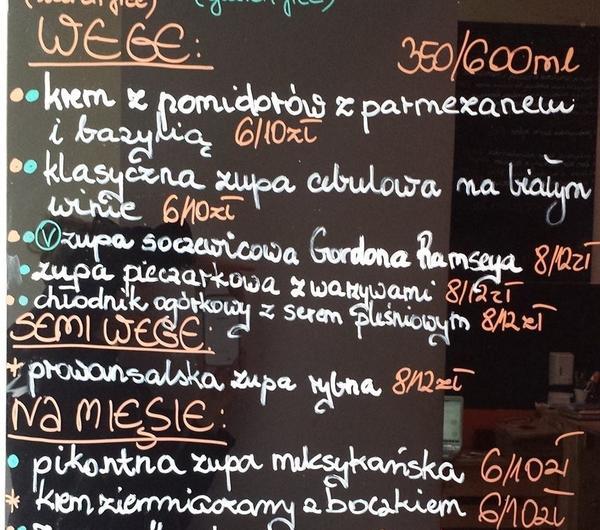 (gluten free)
WEGE: 350/600ml
krem z pomidorów z parmezanem
i bazylią 6/10zł
klasyczna zupa cebulowa na białym
winie 6/10zł
V zupa soczewicowa Gordona Ramseya 8/12zł
zupa pieczarkowa z warzywami 8/12zł
chłodnik ogórkowy z serem pleśniowym 8/12zł
SEMI WEGE:
* prowansalska zupa rybna 8/12zł
NA MIĘSIE:
pikantna zupa meksykańska 6/10zł
* krem ziemniaczany z boczkiem 6/10zł